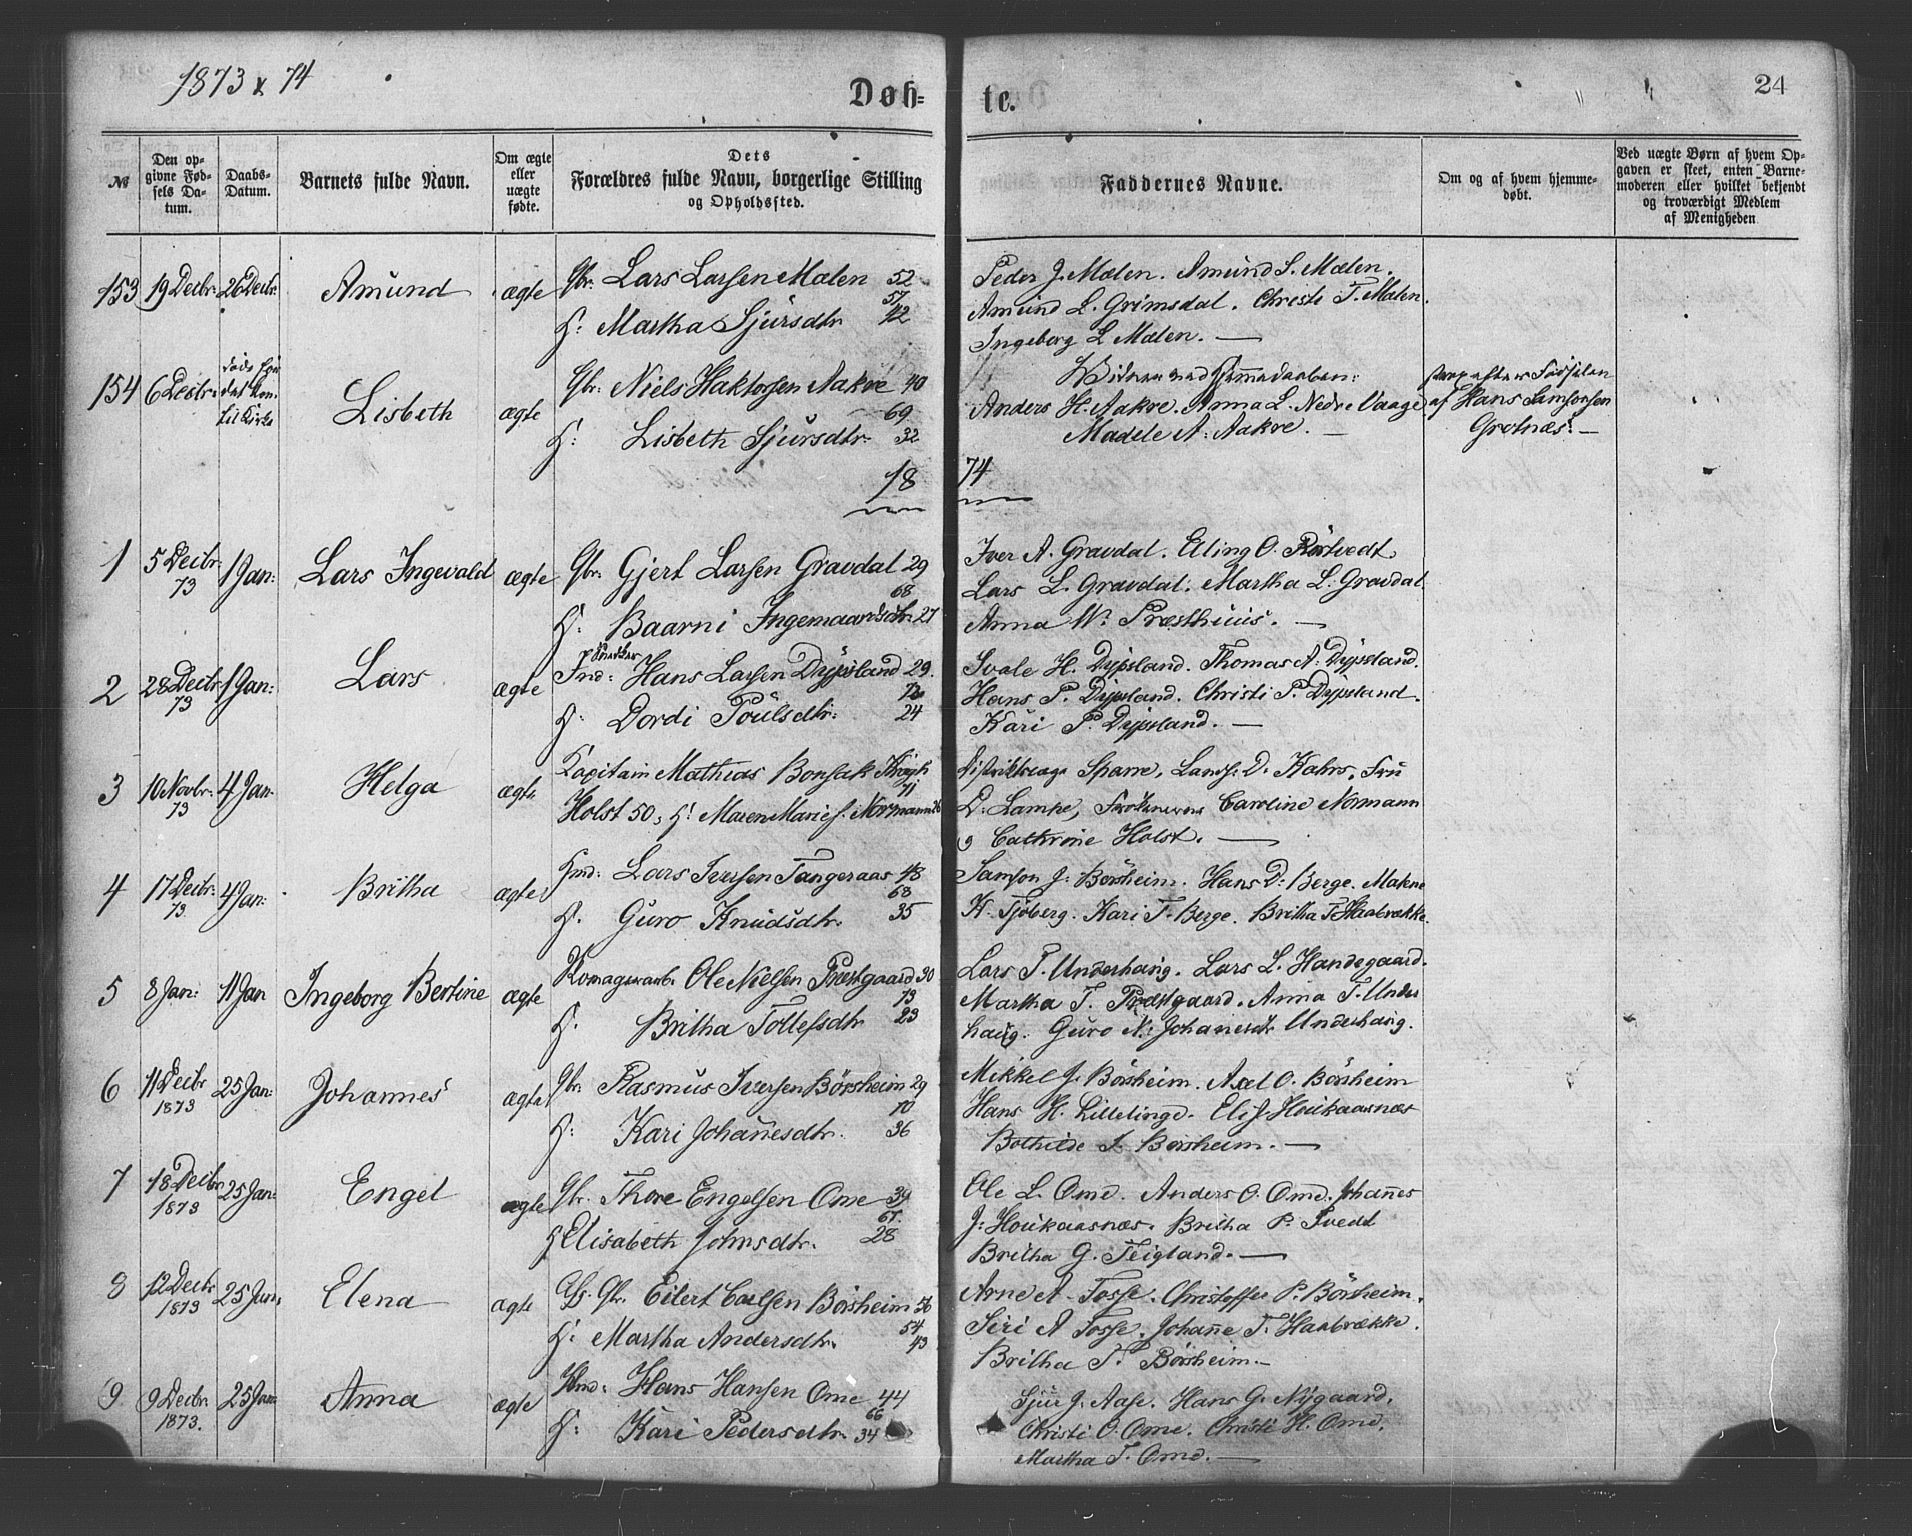 1873 & 74
Døb=
te.
24
№
Den op-
givne Fød-
sels Da-
tum.
Daabs-
Datum.
Barnets fulde Navn.
Om ægte
eller
uægte
fødte.
Dets
Forældres fulde Navn, borgerlige Stilling
og Opholdssted.
Faddernes Navne.
Om og af hvem hjemme-
døbt.
Ved uægte Børn af hvem Op-
gaven er skeet, enten Barne-
moderen eller hvilket bekjendt
og troværdigt Medlem
af Menigheden
153 19 Decbr. 26 Decbr. Amund ægte Gbr. Lars Larsen Mælen 52
57
H: Martha Sjursdtr 42
Peder J. Mælen. Amund S. Mælen.
Amund L. Grimsdal. Christi T. Mælen.
Ingeborg L Mælen. —
154 6 Decbr. Lisbeth ægte Gbr: Niels Haktorsen Aakre 40
69
H: Lisbeth Sjursdtr. 32
Anders H. Aakre. Anna L. Nedre Vaage
Madele A. Aakre. —
strax efter Fødselen
af Hans Samsonsen
Grotnæs. —
18 74
1 5 Decbr. 73 1 Jan: Lars Ingevald ægte Gbr: Gjert Larsen Gravdal 29
68
H: Baarni Ingemaarsdtr. 27
Iver A. Gravdal. Eling O. Røitvedt.
Lars L. Gravdal. Martha L. Gravdal
Anna N. Præsthuus. —
2 28 Decbr 73 1 Jan: Lars ægte Ind: Snedker Hans Larsen Dypsland 29.
73
H: Dordi Poulsdtr: 24
Svale H. Dypsland. Thomas A. Dypsland.
Hans P. Dypsland. Christi P. Dypsland.
Kari P. Dypsland. —
3 10 Novbr. 73 4 Jan. Helga ægte Kapitain Mathias Bonsak Krogh
71
Holst 50, H: Maren Marie f. Normann
Distriktslæge Sparre, Lands: D. Kahrs, Fru
D. Lampe, Frøknerne Caroline Normann
og Cathrine Holst. —
4 17 Decbr. 73 4 Jan: Britha ægte Hmd: Lars Iversen Tangeraas 48
68
H. Guro Knudsdtr. 35
Samson J. Børsheim. Hans D: Berge. Malene
K. Tjoberg. Kari T. Berge. Britha T. Haabrække.
5 8 Jan: 11 Jan Ingeborg Bertine ægte Komagerarb. Ole Nielsen Præstgaard 30
73
H. Britha Tollefsdtr 23
Lars T. Underhaug. Lars L. Handegaard.
Martha T. Præstgaard. Anna T. Under
haug. Guro N. Johanesdtr Underhaug.
6 11 Decbr 1873 25 Jan: Johannes ægte Gbr. Rasmus Iversen Børsheim 29
70
H: Kari Johanesdtr. 36
Mikkel J. Børsheim. Axel O. Børsheim
Hans H. Lillelinge. Elis. Houkaasnæs
Bothilde I. Børsheim. —
7 18 Decbr 1873 25 Jan: Engel ægte Gbr. Thore Engelsen Ome 39
67.
H Elisabeth Johnsdtr. 28
Ole L. Ome. Anders O. Ome. Johannes
J: Houkaasnæs. Britha P. Tvedt
Britha G. Teigland. —
8 12 Decbr 1873 25 Jan: Elena ægte Gbr. Eilert Carlsen Børsheim 56
54
H: Martha Andersdtr. 43
Arne A. Fosse. Christoffer P. Børsheim.
Siri A Fosse. Johanne T. Haabrække.
Britha T. Børsheim. —
9 9 Decbr. 1873. 25 Jan. Anna ægte Hmd: Hans Hansen Ome 44
66
H: Kari Pedersdtr. 34
Sjur J. Aase. Hans G. Nygaard.
Christi O. Ome. Christi H. Ome.
Martha T. Ome. —